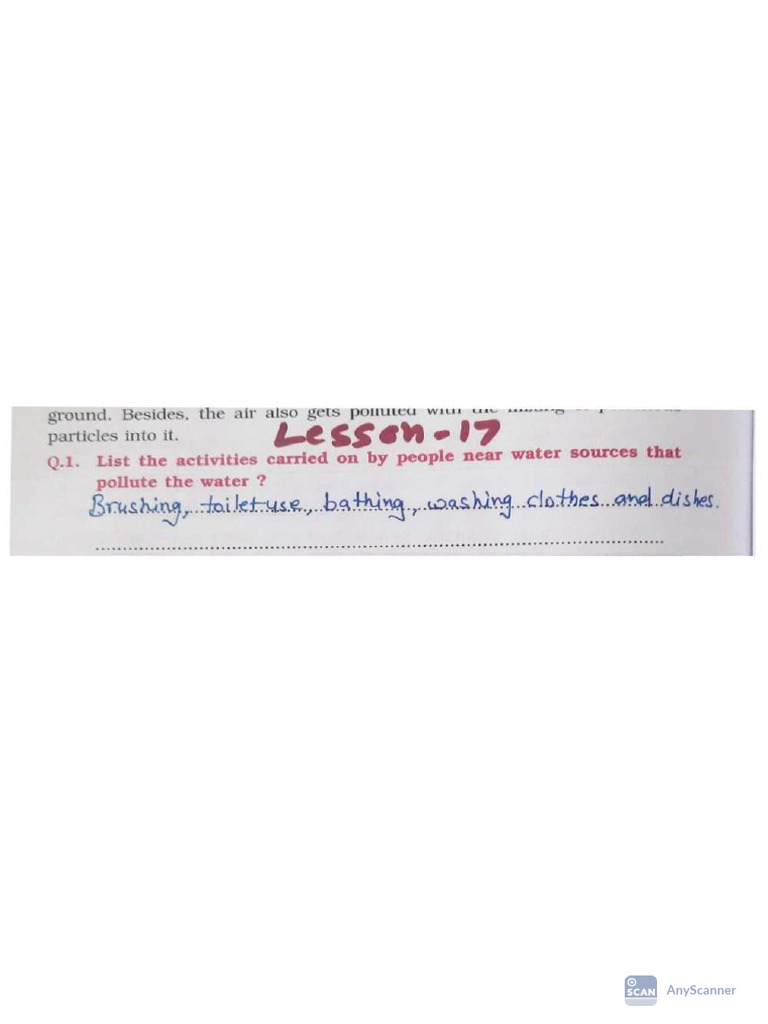 ground. Besides, the air also gets polluted with the
particles into it.
Lesson-17
Q.1. List the activities carried on by people near water sources that
pollute the water ?
Brushing, toilet use, bathing, washing clothes and dishes.
SCAN AnyScanner